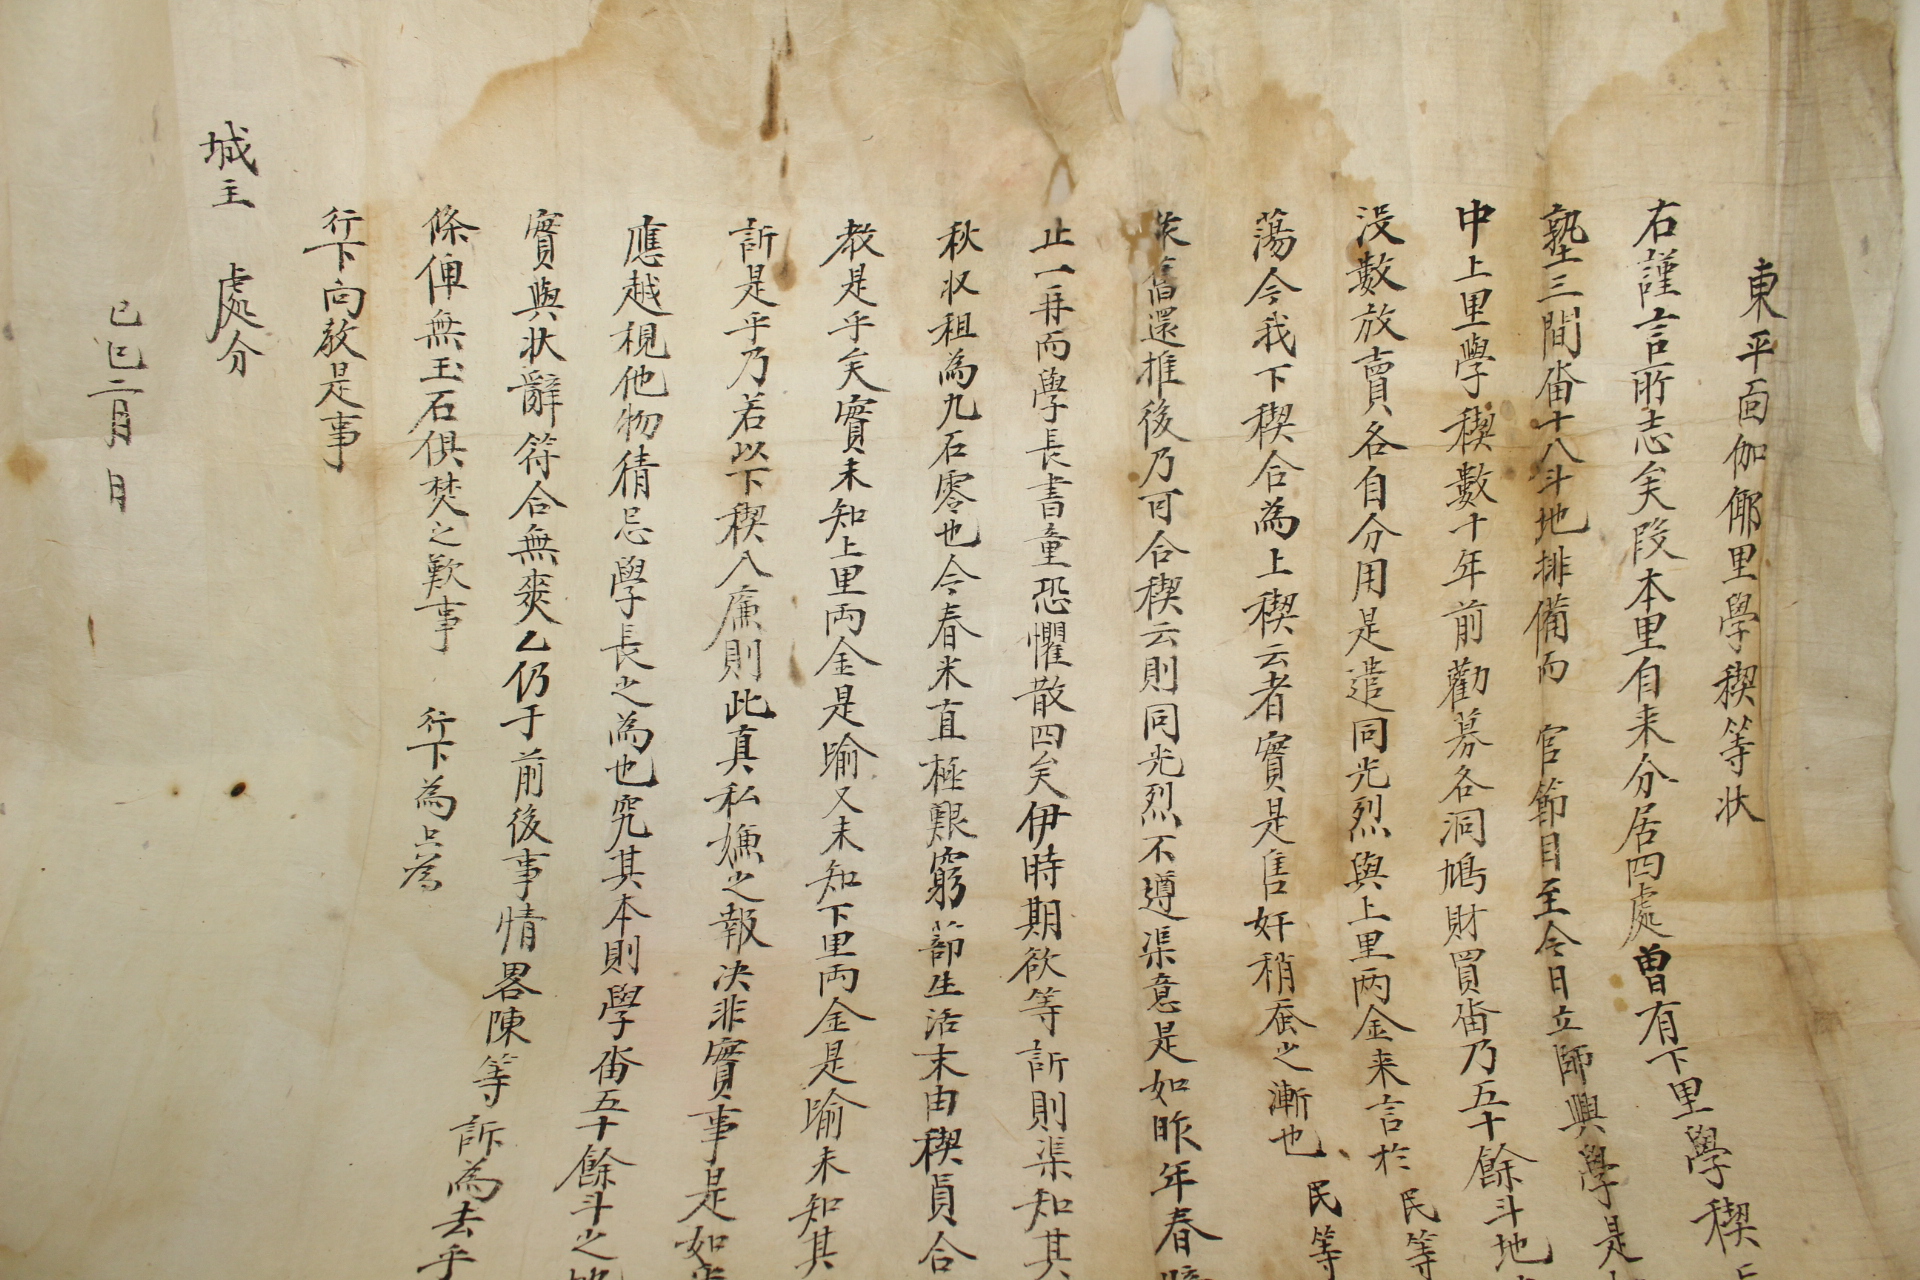 東平面伽倻里學稧等狀
右謹言所志矣段本里自来分居四處曾有下里學稧
塾三間畓十八斗地排備而 官節目至今日立師興學是
中上里學稧數十年前勸募各洞鳩財買畓乃五十餘斗地
没數放賣各自分用是遣同光烈與上里两金来言於 民等
蕩今我下稧合為上稧云者實是售奸稍蚕之漸也 民等
舊還推後乃可合稧云則同光烈不遵渠意是如昨年春
止一再而學長書童恐懼散四矣伊時期欲等訴則渠知其
秋収租為九石零也今春米直極艱窮節生活末由稧員合
教是乎矣實未知上里両金是喻又未知下里両金是喻未知其
訴是乎乃若以下稧入廉則此真私嫌之報决非實事是如
應越視他物猜忌學長之為也究其本則學畓五十餘斗之
實與状辭符合無爽乙仍于前後事情畧陳等訴為去乎
條俾無玉石俱焚之歎事 行下為只為
行下向敎是事
城主 處分
己巳二月 日